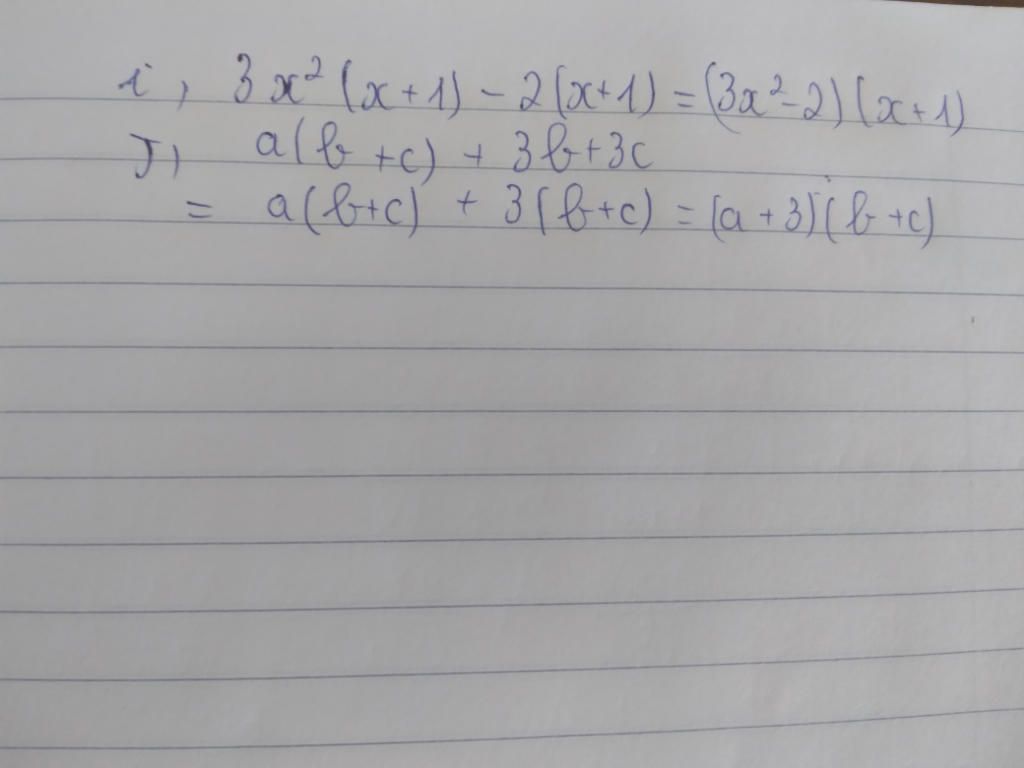 i, 3x² (x+1) - 2(x+1) = (3x²-2)(x+1)
J, a(b+c) + 3b+3c
= a(b+c) + 3(b+c) = (a+3)(b+c)